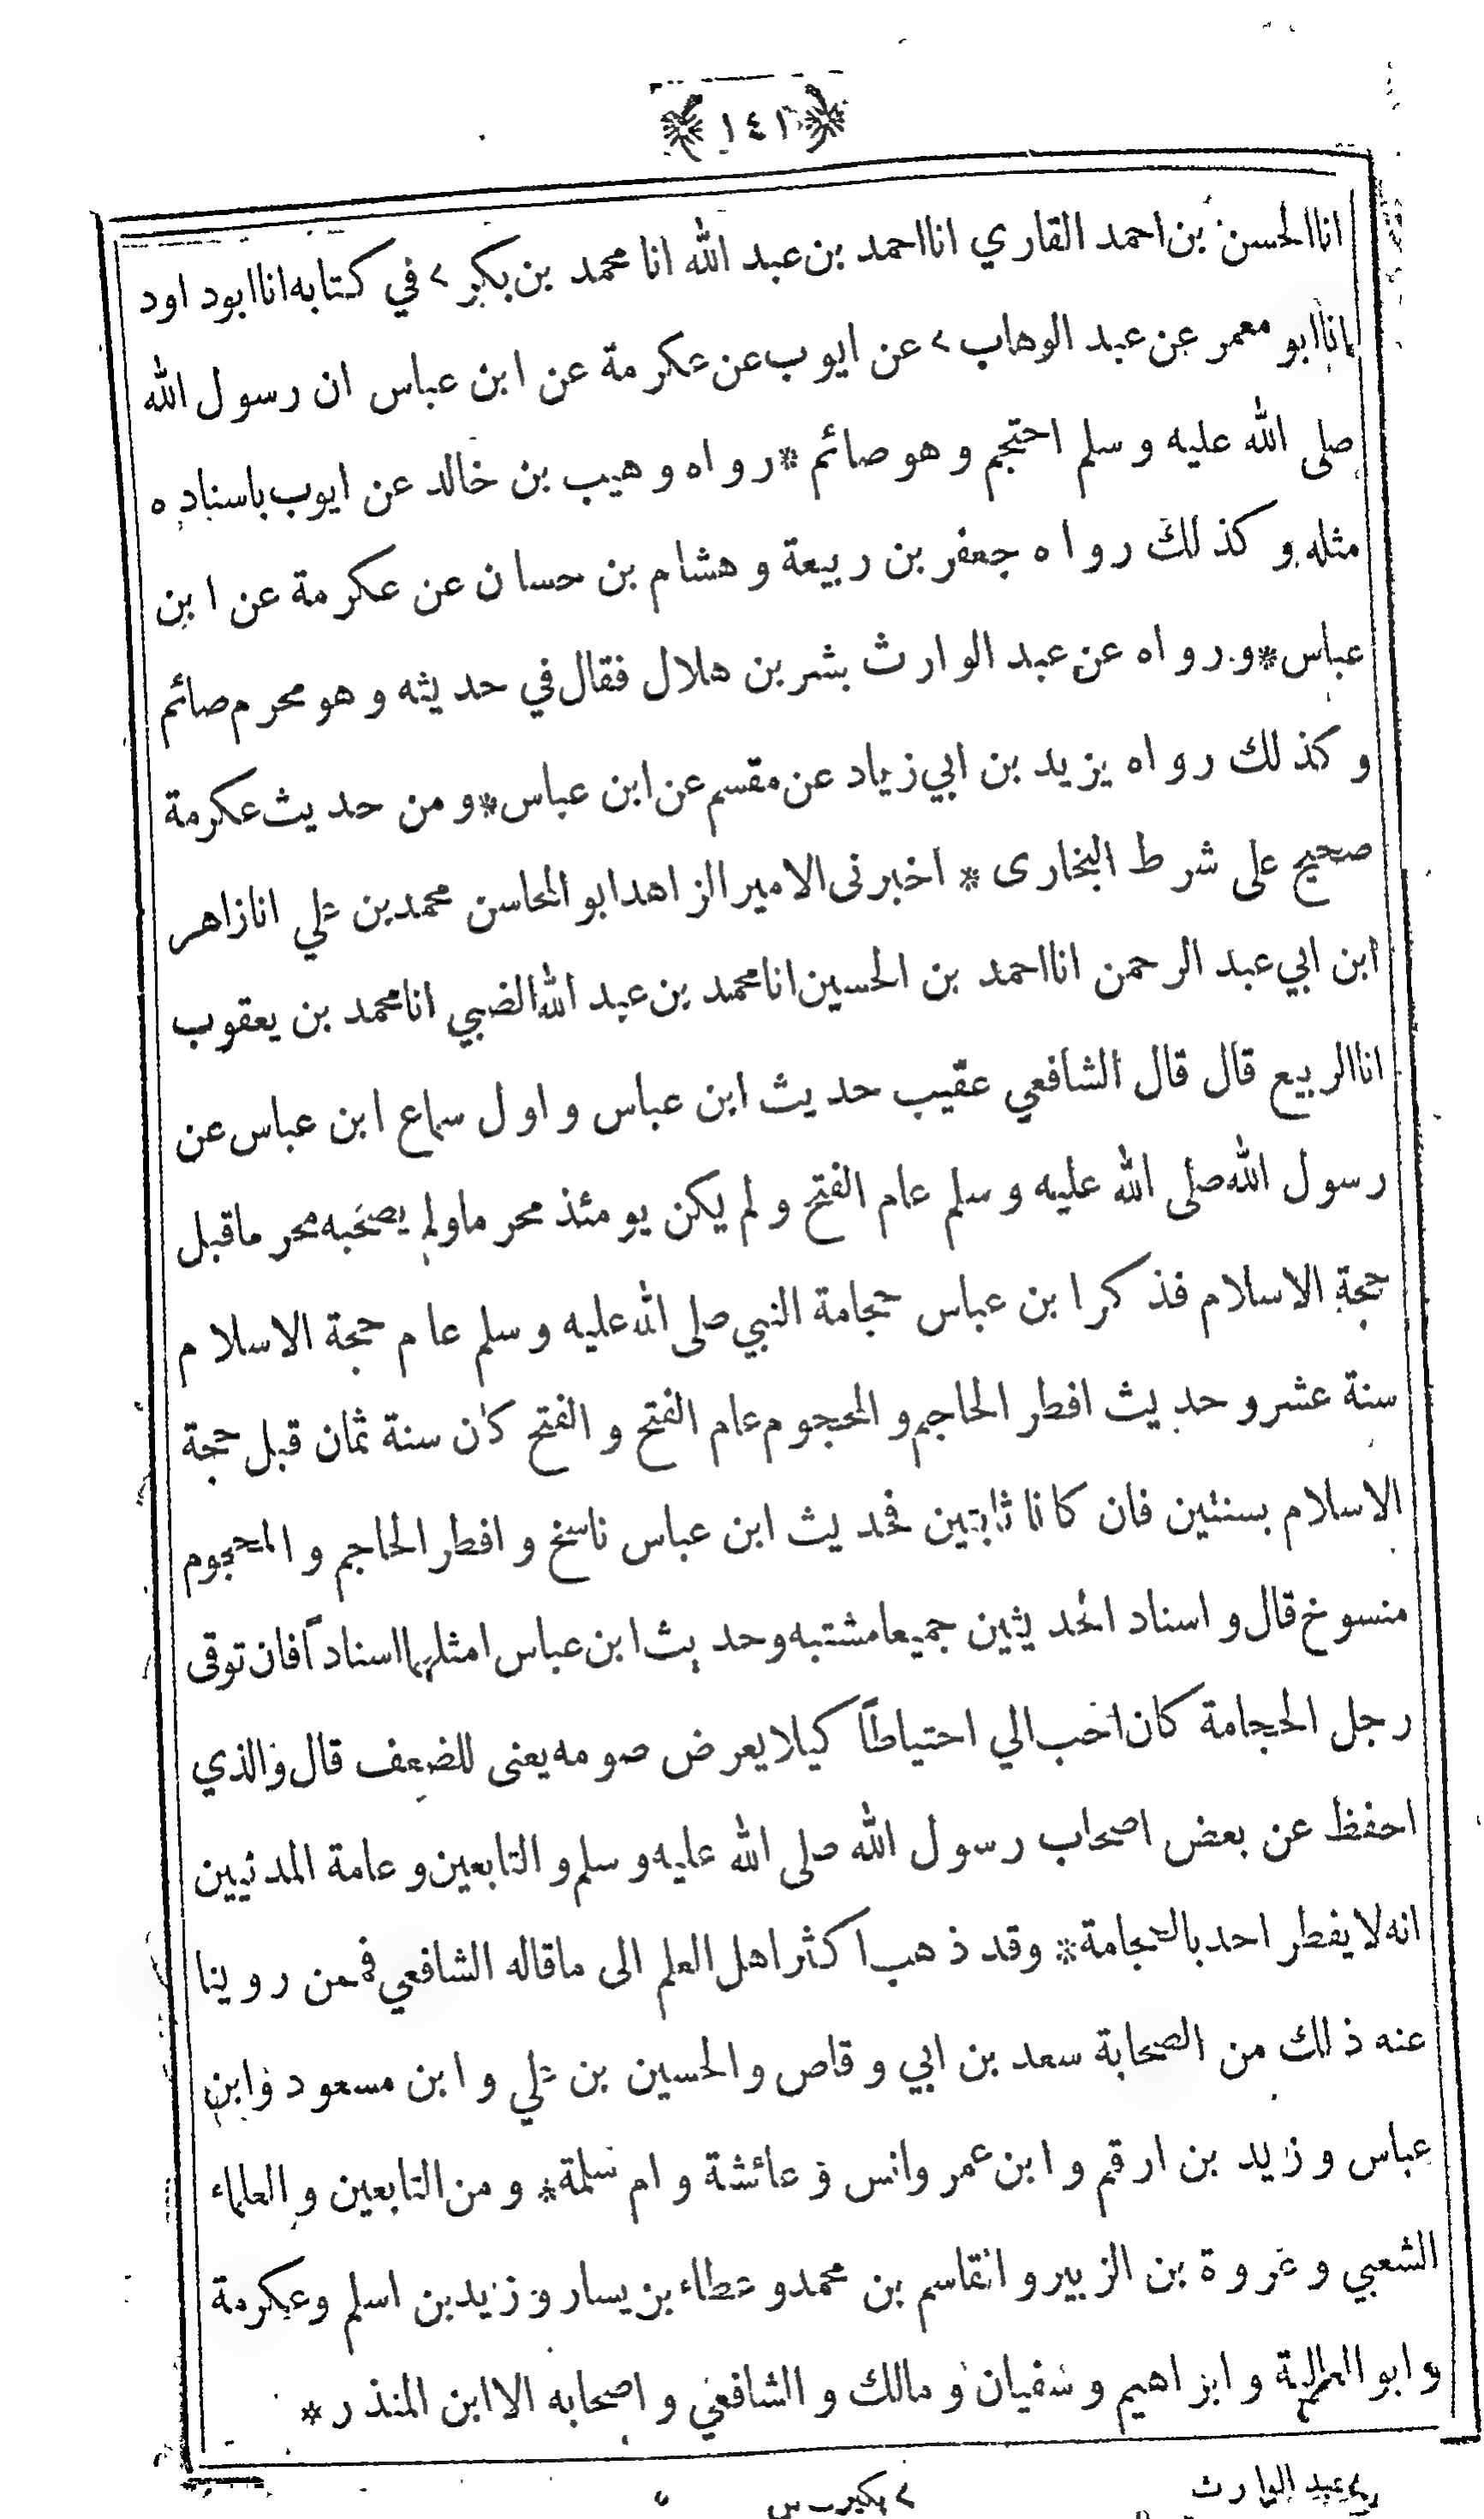 ﴿ ١٤١ ﴾
انا الحسن بن احمد القاري انا احمد بن عبد الله انا محمد بن بكر ٢ في كتابه انا ابو داود
انا ابو معمر عن عبد الوهاب ٢ عن ايوب عن عكرمة عن ابن عباس ان رسول الله
صلى الله عليه و سلم احتجم و هو صائم * رواه وهيب بن خالد عن ايوب باسناده
مثله و كذلك رواه جعفر بن ربيعة و هشام بن حسان عن عكرمة عن ابن
عباس * و رواه عن عبد الوارث بشر بن هلال فقال في حديثه و هو محرم صائم
و كذلك رواه يزيد بن ابي زياد عن مقسم عن ابن عباس * و من حديث عكرمة
صحيح على شرط البخارى * اخبرنى الامير الزاهد ابو المحاسن محمد بن علي انا زاهر
ابن ابي عبد الرحمن انا احمد بن الحسين انا محمد بن عبد الله الضبي انا محمد بن يعقوب
انا الربيع قال قال الشافعي عقيب حديث ابن عباس و اول سماع ابن عباس عن
رسول الله صلى الله عليه و سلم عام الفتح و لم يكن يومئذ محرما ولم يصحبه محرما قبل
حجة الاسلام فذكر ابن عباس حجامة النبي صلى الله عليه و سلم عام حجة الاسلام
سنة عشر و حديث افطر الحاجم و المحجوم عام الفتح و الفتح كان سنة ثمان قبل حجة
الاسلام بسنتين فان كانا ثابتين فحديث ابن عباس ناسخ و افطر الحاجم و المحجوم
منسوخ قال و اسناد الحديثين جميعا مشتبه وحديث ابن عباس امثلهما اسناداً فان توقى
رجل الحجامة كان احب الي احتياطاً كيلا يعرض صومه يعنى للضعف قال والذي
احفظ عن بعض اصحاب رسول الله صلى الله عليه و سلم و التابعين و عامة المدنيين
انه لا يفطر احد بالحجامة * وقد ذهب اكثر اهل العلم الى ما قاله الشافعي فممن روينا
عنه ذلك من الصحابة سعد بن ابي وقاص والحسين بن علي و ابن مسعود وابن
عباس و زيد بن ارقم و ابن عمر وانس و عائشة و ام سلمة * و من التابعين و العلماء
الشعبي و عروة بن الزبير و القاسم بن محمد و عطاء بن يسار و زيد بن اسلم وعكرمة
و ابو العالية و ابراهيم و سفيان و مالك و الشافعي و اصحابه الا ابن المنذر *
٢ عبد الوارث ٢ بكير ب س